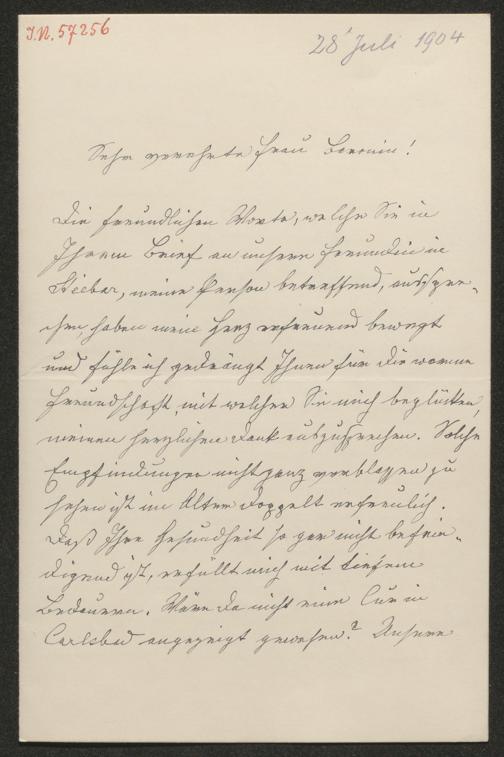 I.N. 57256
28' Juli 1904
Sehr verehrte Frau Baronin!
Die freundlichen Worte, welche Sie in
Ihrem Brief an unsere Freundin
meine Person betreffend, ausspre-
chen, haben mein Herz erfreuend bewegt
und fühle ich gedrängt Ihnen für die warme
Freundschaft, mit welcher Sie mich beglücken,
meinen herzlichen Dank auszusprechen. Solche
Empfindungen nicht ganz verblassen zu
sehen ist im Alter doppelt erfreulich.
Daß Ihre Gesundheit so gar nicht befrie-
digend ist, erfüllt mich mit tiefem
Bedauern. Wäre da nicht eine Cur in
Carlsbad angezeigt gewesen? Unsere